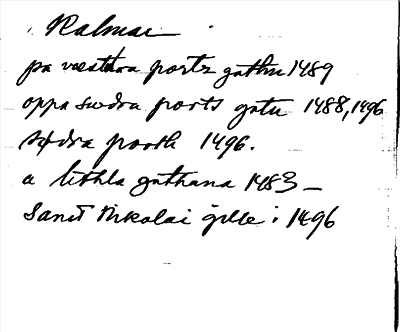 Kalmar
pa væstra portz gathu 1489
oppa swdra ports gatu 1488, 1496
sødra poorth 1496.
a lithla gathana 1483 –
Sanct Nikolai gille i 1496